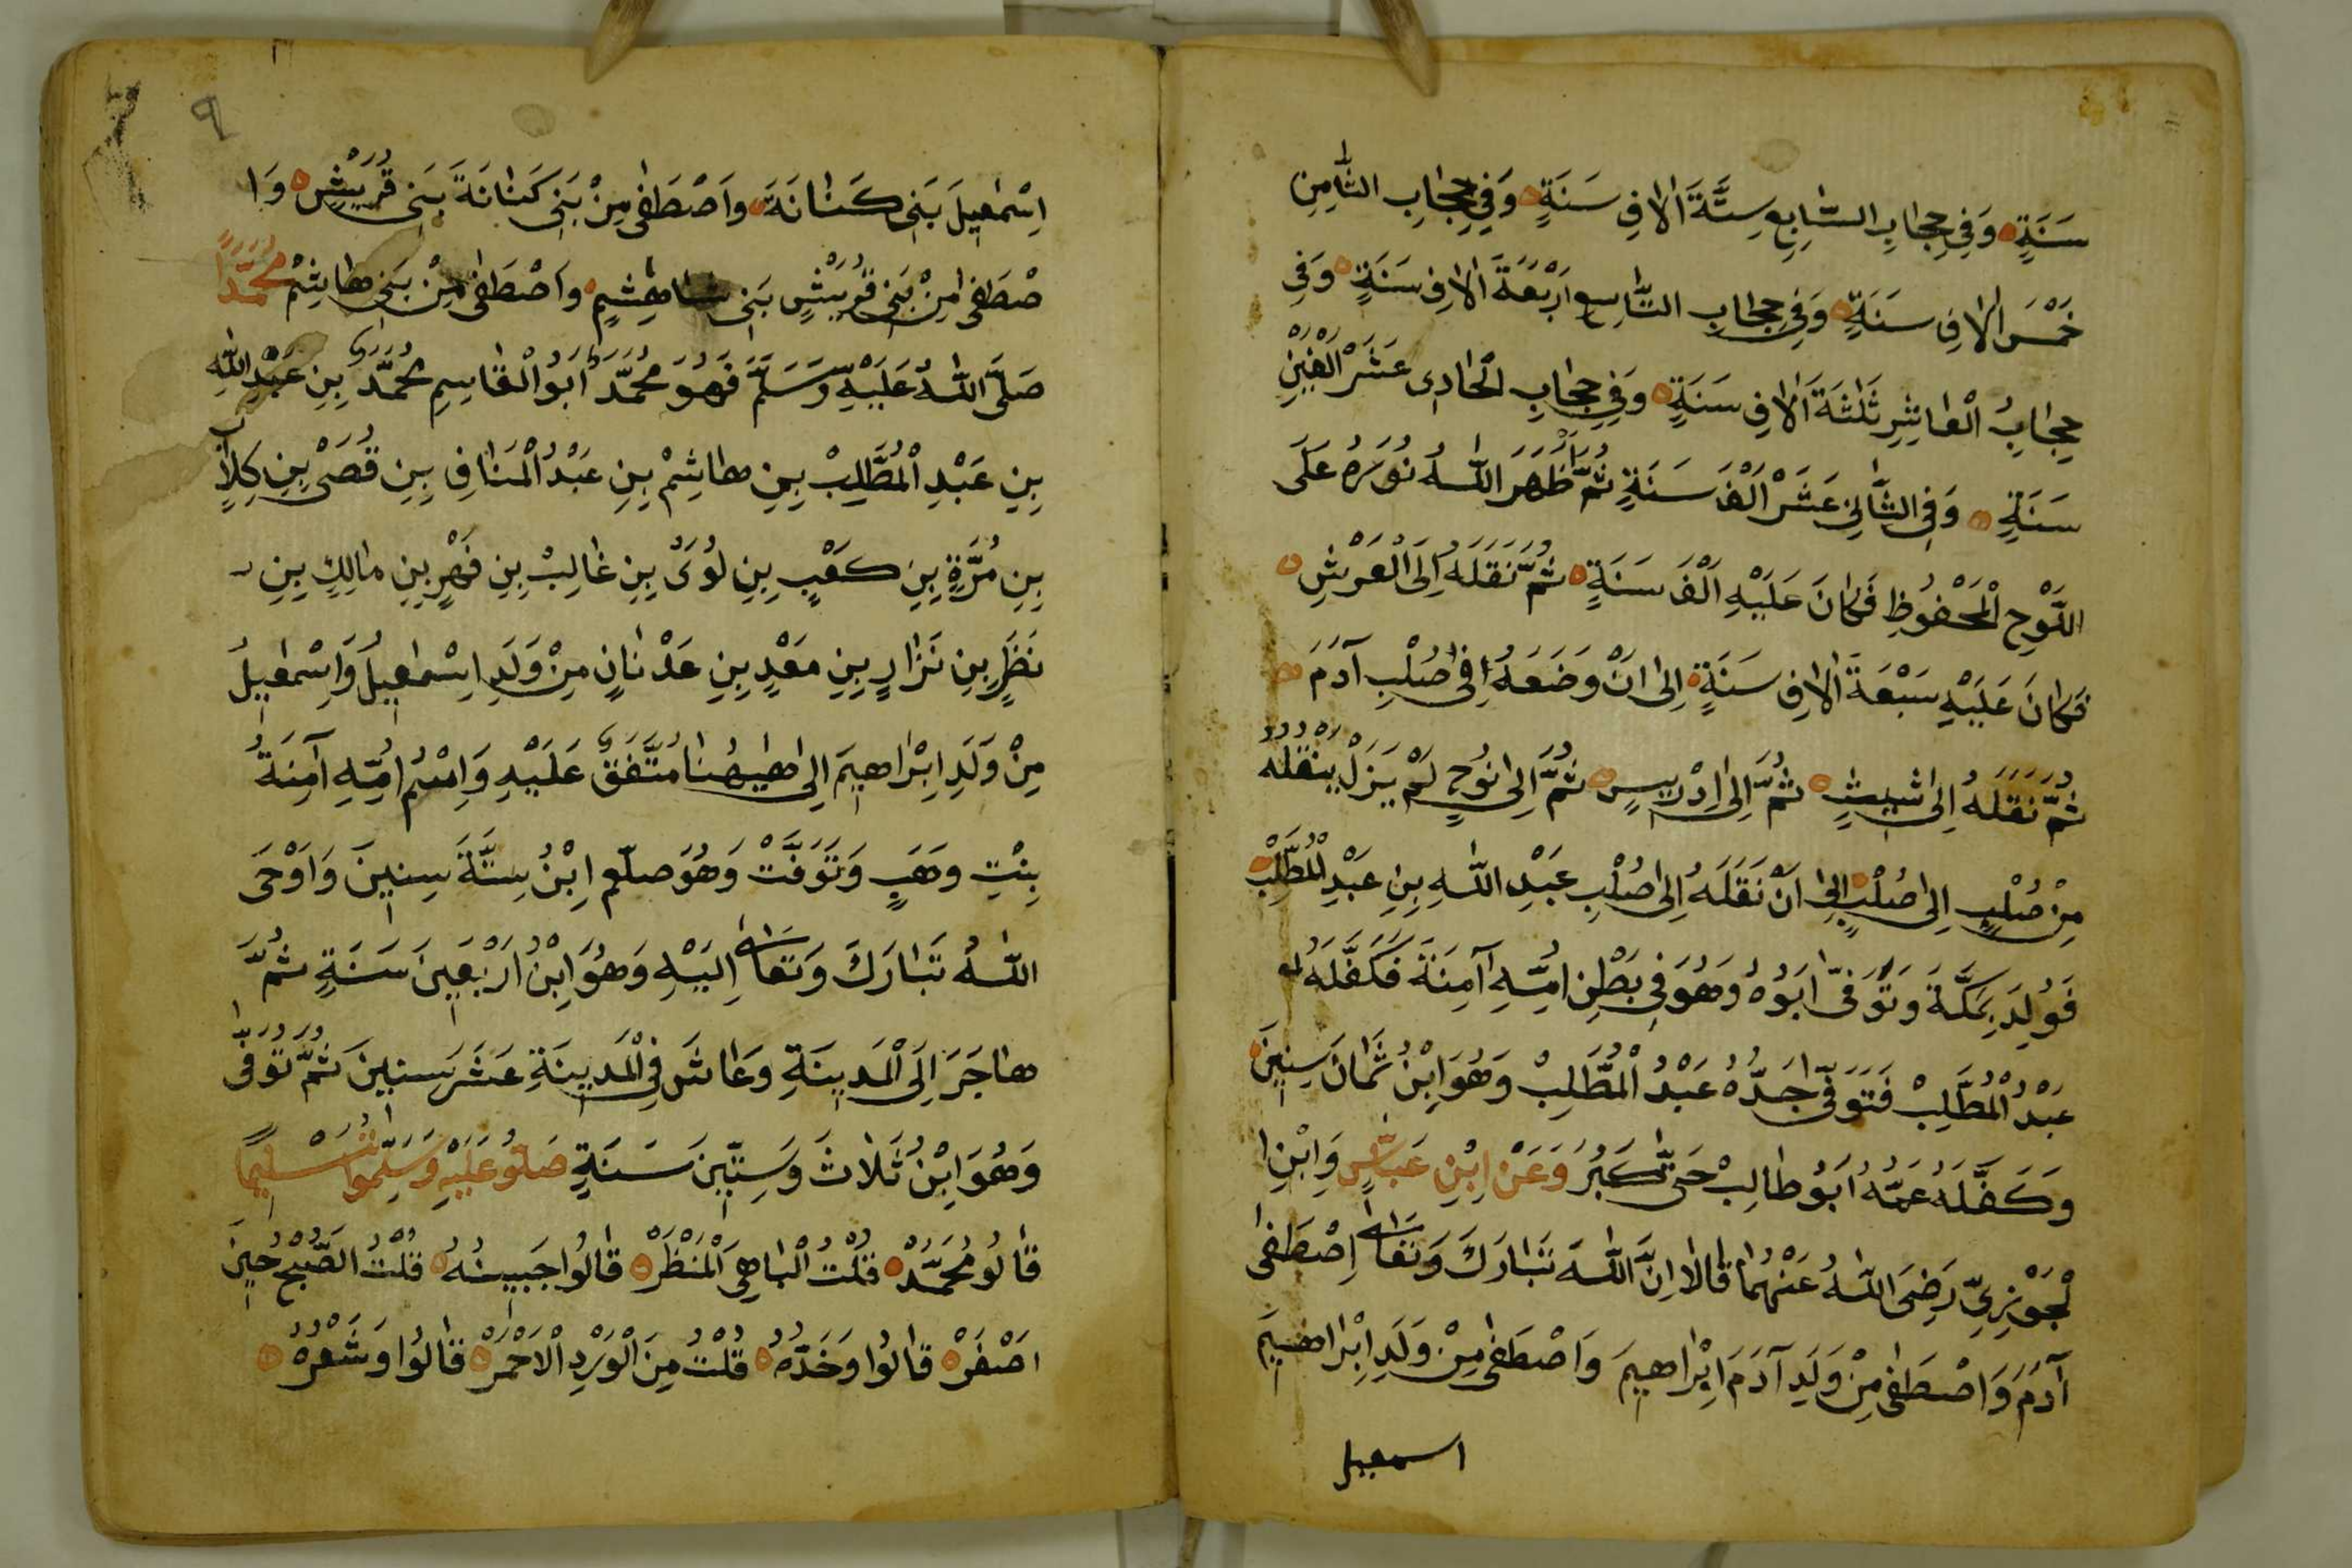 سَنَةٍ وَفِي حِجَابِ السَّابِعِ سِتَّةَ الٰافِ سَنَةٍ وَفِي حِجَابِ الثَّامِنِ
خَمْسَ الٰافِ سَنَةٍ وَفِي حِجَابِ التَّاسِعِ اَرْبَعَةَ الٰافِ سَنَةٍ وَفِي
حِجَابِ الْعَاشِرِ ثَلٰثَةَ الٰافِ سَنَةٍ وَفِي حِجَابِ الْحَادِى عَشَرْ اَلْفَيْنِ
سَنَةٍ وَفِي الثَّانِي عَشَرْ اَلْفَ سَنَةٍ ثُمَّ اَظْهَرَ اللّٰهُ نُورَهُ عَلَى
اللَّوْحِ الْمَحْفُوظِ فَكَانَ عَلَيْهِ اَلْفَ سَنَةٍ ثُمَّ نَقَلَهُ اِلَى الْعَرْشِ
فَكَانَ عَلَيْهِ سَبْعَةَ الٰافِ سَنَةٍ اِلٰى اَنْ وَضَعَهُ فِي صُلْبِ آدَمَ
ثُمَّ نَقَلَهُ اِلٰى شِيثٍ ثُمَّ اِلٰى اِدْرِيسٍ ثُمَّ اِلٰى نُوحٍ لَمْ يَزَلْ يَنْقُلُهُ
مِنْ صُلْبٍ اِلٰى صُلْبٍ اِلٰى اَنْ نَقَلَهُ اِلٰى صُلْبِ عَبْدِ اللّٰهِ بِنِ عَبْدِ الْمُطَّلِبْ
فَوُلِدَ بِمَكَّةَ وَتُوَفّٰى اَبُوهُ وَهُوَ فِي بَطْنِ اُمِّهِ آمِنَةَ فَكَفَّلَهُ
عَبْدُ الْمُطَّلِبْ فَتَوَفّٰى جَدُّهُ عَبْدُ الْمُطَّلِبْ وَهُوَ اِبْنُ ثَمَانَ سِنِينَ
وَكَفَّلَهُ عَمُّهُ اَبُو طَالِبْ حَتّٰى كَبُرَ وَعَنْ اِبْنِ عَبَّاسٍ وَابْنِ ا
لْجَوْزِىِّ رَضِىَ اللّٰهُ عَنْهُمَا قَالَا اِنَّ اللّٰهَ تَبَارَكَ وَتَعَالٰى اِصْطَفٰى
آدَمَ وَاصْطَفٰى مِنْ وَلَدِ آدَمَ اِبْرَاهِيمَ وَاصْطَفٰى مِنْ وَلَدِ اِبْرَاهِيمَ
اسمعيل
٩
اِسْمٰعِيلَ بَنِى كَنَانَةَ وَاَصْطَفٰى مِنْ بَنِى كَنَانَةَ بَنِى قُرَيْشِ وَا
صْطَفٰى مِنْ بَنِى قُرَيْشٍ بَنِى هَاشِمٍ وَاَصْطَفٰى مِنْ بَنِى هَاشِمْ مُحَمَّدًا
صَلَّى اللّٰهُ عَلَيْهِ وَسَلَّمَ فَهُوَ مُحَمَّدٌ اَبُو الْقَاسِمِ مُحَمَّدٌ بِنِ عَبْدِ اللّٰهِ
بِنِ عَبْدِ الْمُطَّلِبْ بِنِ هَاشِمْ بِنِ عَبْدُ الْمَنَافِ بِنِ قُصَىْ بِنِ كِلَابٍ
بِنِ مُرَّةِ بِنِ كَعْبٍ بِنِ لُوَىْ بِنِ غَالِبْ بِنِ فَهْرٍ بِنِ مَالِكِ بِنِ
نَظَرِ بِنِ نَزَارِ بِنِ مَعْدٍ بِنِ عَدْنَانٍ مِنْ وَلَدِ اِسْمٰعِيلُ وَاِسْمٰعِيلُ
مِنْ وَلَدِ اِبْرَاهِيمَ اِلٰى هٰيهُنَا مُتَّفَقٌ عَلَيْهِ وَاِسْمُ اُمِّهِ آمِنَةُ
بِنْتِ وَهَبٍ وَتَوَفَّتْ وَهُوَ صلّعم اِبْنُ سِتَّةَ سِنِينَ وَاَوْحَى
اللّٰهُ تَبَارَكَ وَتَعَالٰى اِلَيْهِ وَهُوَ اِبْنُ اَرْبَعِينَ سَنَةٍ ثُمَّ
هَاجَرَ اِلَى الْمَدِينَةِ وَعَاشَ فِي الْمَدِينَةِ عَشَرَ سِنِينَ ثُمَّ تُوَفّٰى
وَهُوَ اِبْنُ ثَلَاثَ وَسِتِّينَ سَنَةٍ صَلُّو عَلَيْهِ وَسَلِّمُوا تَسْلِيمًا
قَالُو مُحَمَّدْ قُلْتُ الْبَاهِىَ الْمَنْظَرْ قَالُوا جَبِينُهُ قُلْتُ الصُّبْحُ حِينَ
اَصْفَرْ قَالُوا وَخَدُّهُ قُلْتُ مِنَ الْوَرْدِ الْاَحْمَرْ قَالُوا وَشَعْرُهُ